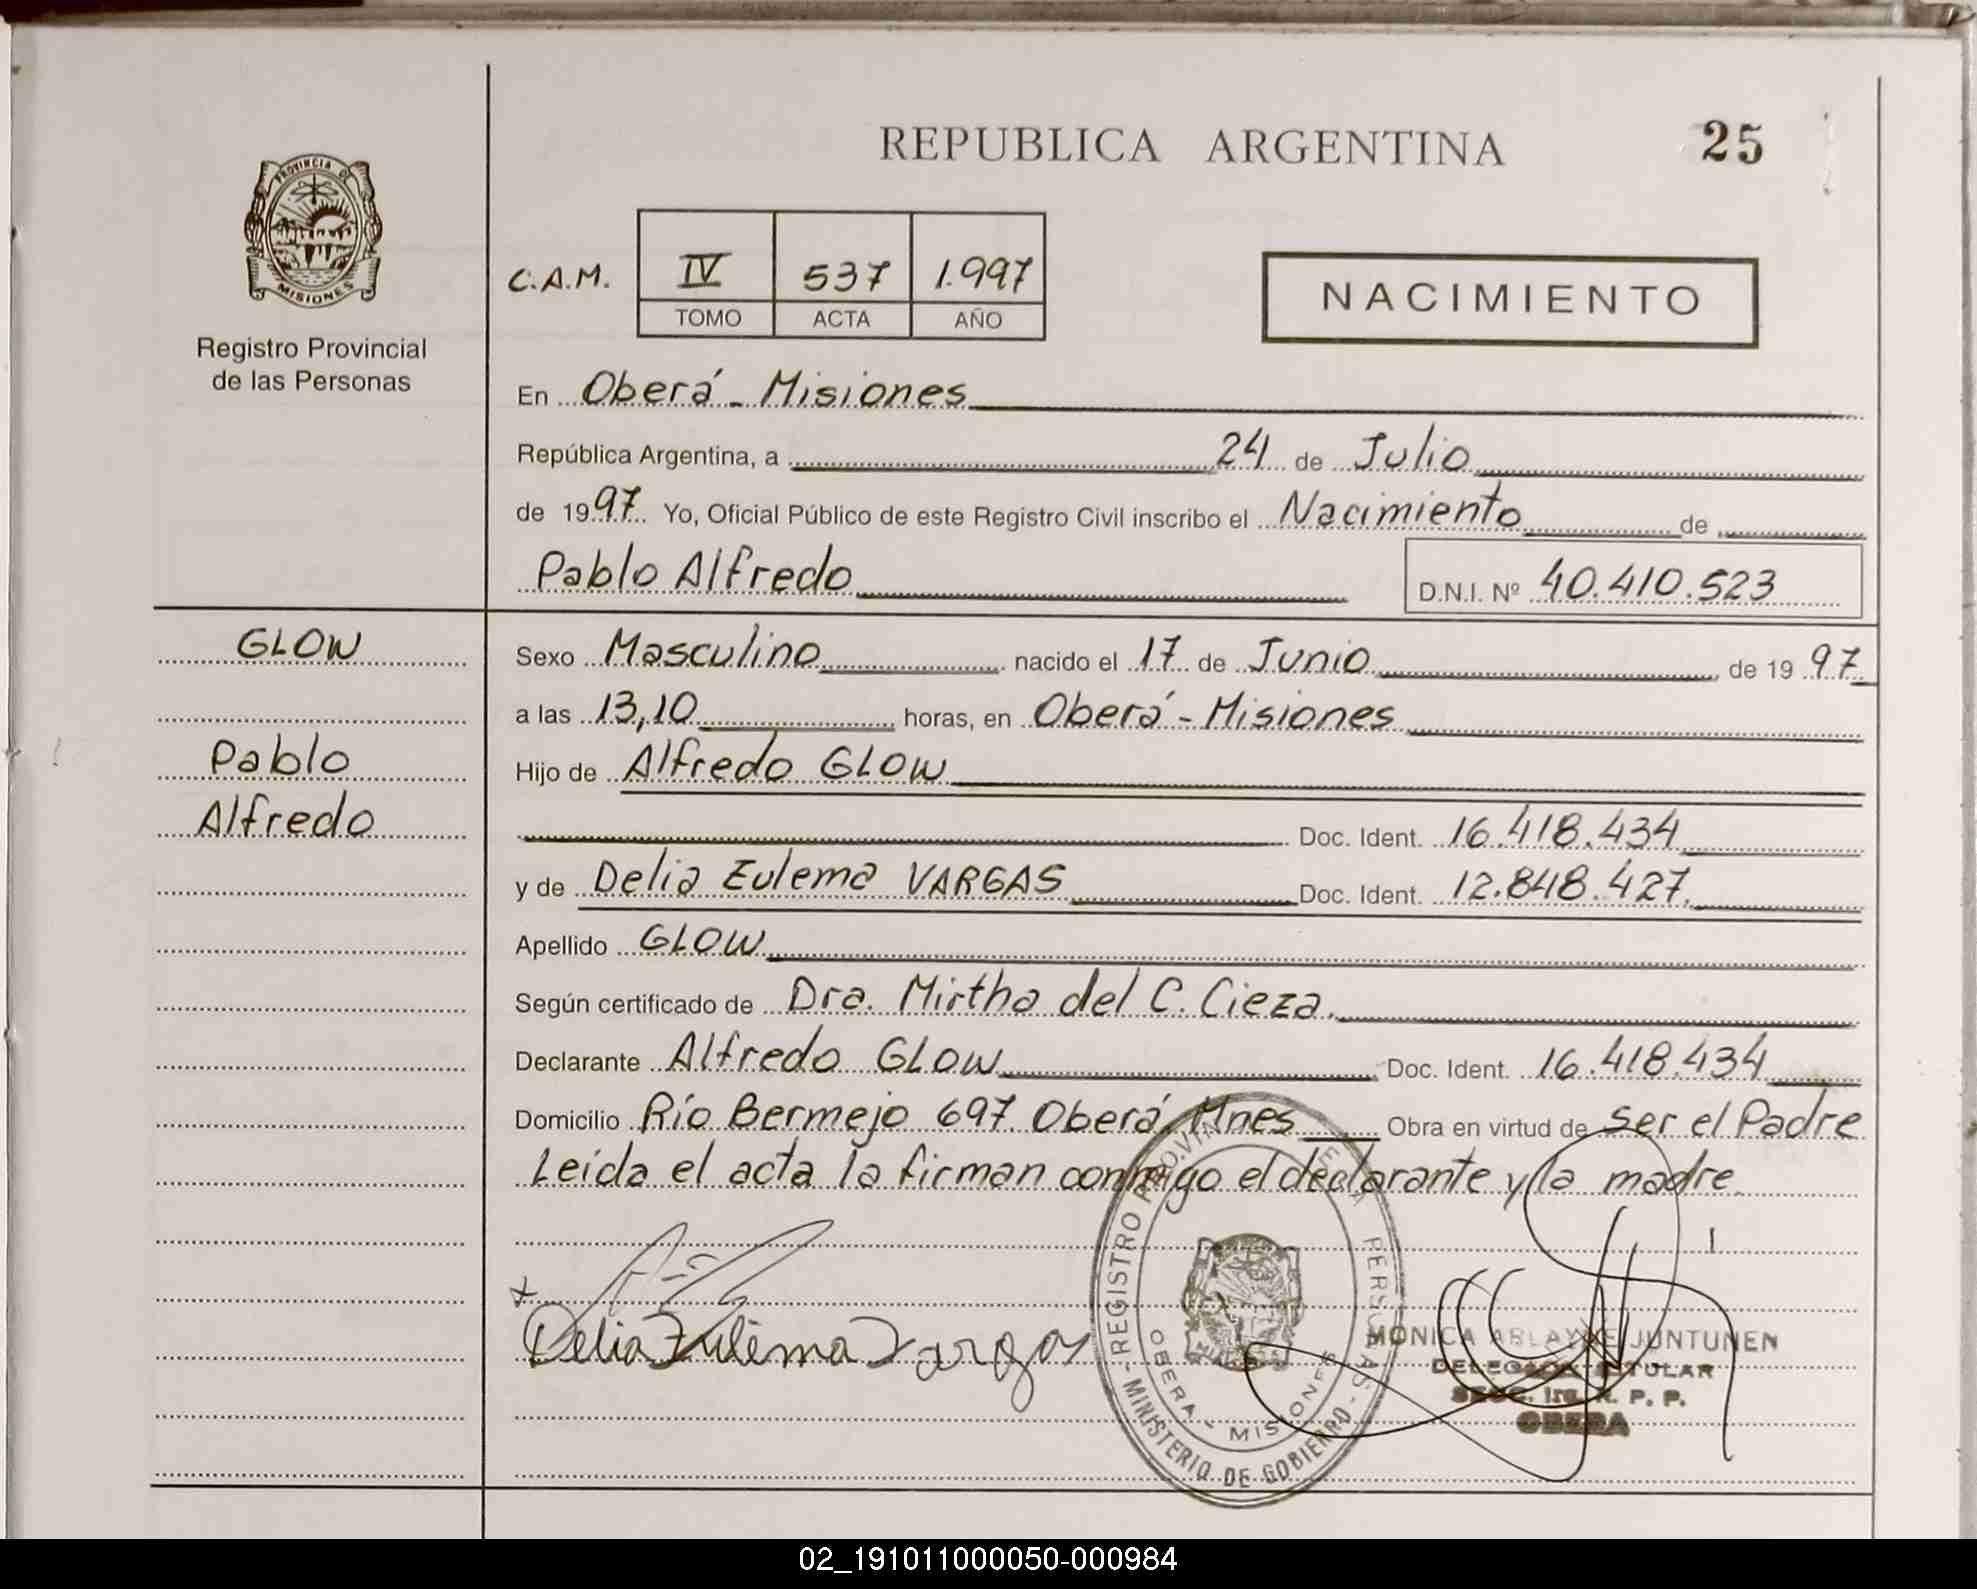 REPUBLICA ARGENTINA
25
PROVINCIA DE
MISIONES
Registro Provincial
de las Personas
C.A.M.
IV 537 1.997
TOMO ACTA AÑO
NACIMIENTO
En Oberá - Misiones
República Argentina, a 24 de Julio
de 1997 Yo, Oficial Público de este Registro Civil inscribo el Nacimiento de
Pablo Alfredo D.N.I. Nº 40.410.523
GLOW
Pablo
Alfredo
Sexo Masculino nacido el 17 de Junio de 1997
a las 13,10 horas, en Oberá - Misiones
Hijo de Alfredo GLOW
Doc. Ident. 16.418.434
y de Delia Eulema VARGAS Doc. Ident. 12.848.427.
Apellido GLOW
Según certificado de Dra. Mirtha del C. Cieza.
Declarante Alfredo GLOW Doc. Ident. 16.418.434
Domicilio Río Bermejo 697 Oberá, Mnes Obra en virtud de ser el Padre
Leída el acta la firman conmigo el declarante y la madre.
Delia Zulema Vargas
REGISTRO PROVINCIAL DE LAS PERSONAS
OBERA - MISIONES
- MINISTERIO DE GOBIERNO -
MONICA JUNTUNEN
TITULAR
R. P. P.
OBERA
02_191011000050-000984